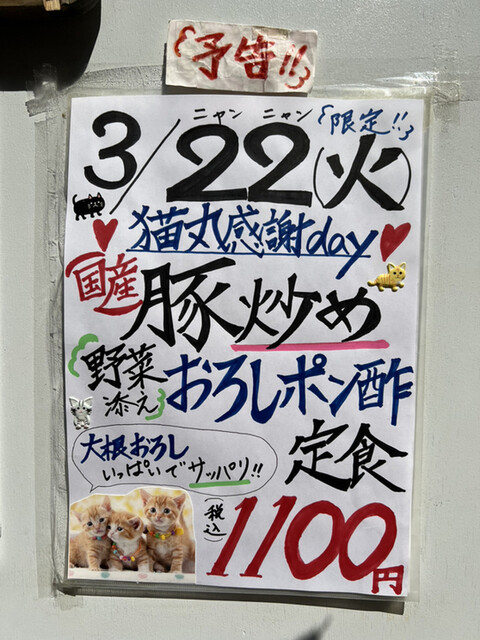 予告!!
ニャン ニャン
3/22(火) 限定!!
猫丸感謝day
国産 豚炒め
野菜添え おろしポン酢
定食
大根おろし
いっぱいでサッパリ!!
(税込) 1100円